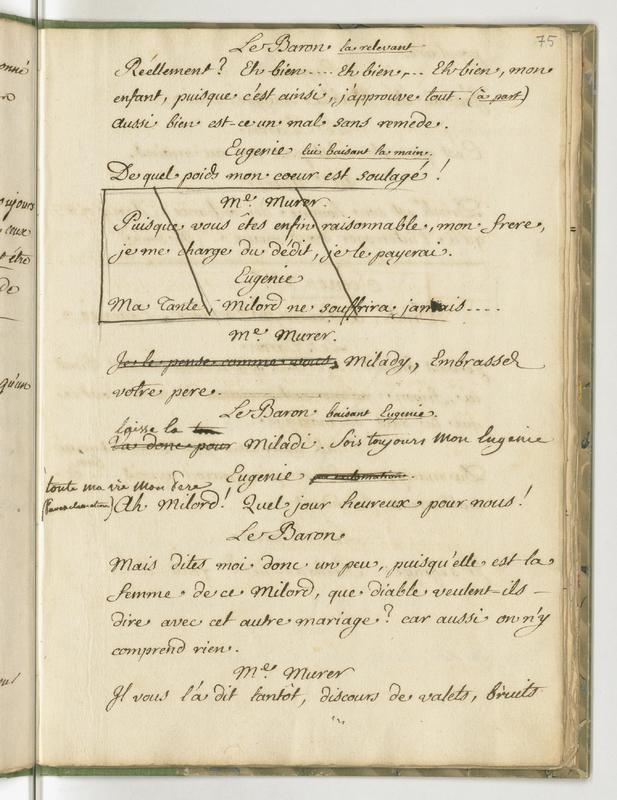 75
Le Baron la relevant
Réellement? Eh bien.... Eh bien,... Eh bien, mon
enfant, puisque c'est ainsi, j'approuve tout. (à part)
Aussi bien est-ce un mal sans remede.
Eugenie lui baisant la main.
De quel poids mon coeur est soulagé!
Me. Murer.
Puisque vous êtes enfin raisonnable, mon frere,
je me charge du dédit, je le payerai.
Eugenie
Ma Tante Milord ne souffrira jamais....
Me. Murer.
Je le pense comme vous, Milady, Embrassez
votre pere.
Le Baron baisant Eugenie.
laisse la ton
Va donc pour Miladi. Sois toujours Mon Eugenie
Eugenie par exclamation.
toute ma vie Mon Pere
(Par exclamation) Ah Milord! Quel jour heureux pour nous!
Le Baron
Mais dites moi donc un peu, puisqu'elle est la
femme de ce Milord, que diable veulent-ils
dire avec cet autre mariage? car aussi on n'y
comprend rien.
Me. Murer
Il vous l'a dit tantôt, discours de valets, bruits